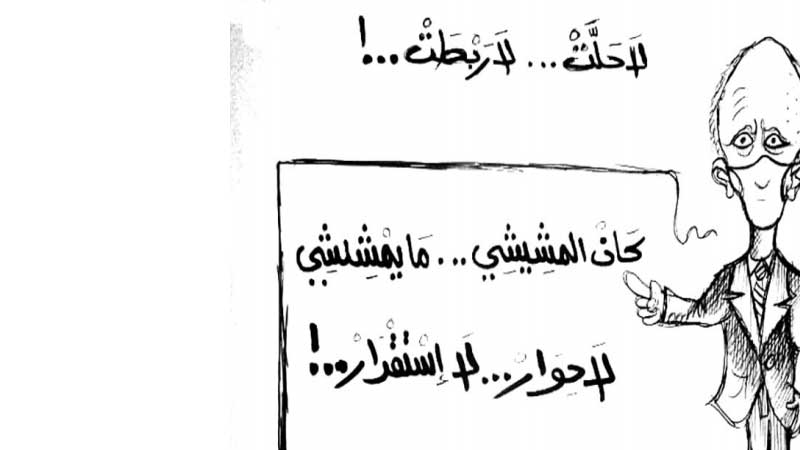 لَا حَلَّتْ... لَا رَبْطَتْ...!
كَانْ المشِيشِي... مَا يمْشِيشِي
لَا حِوَارْ... لَا إسْتقْرَارْ...!